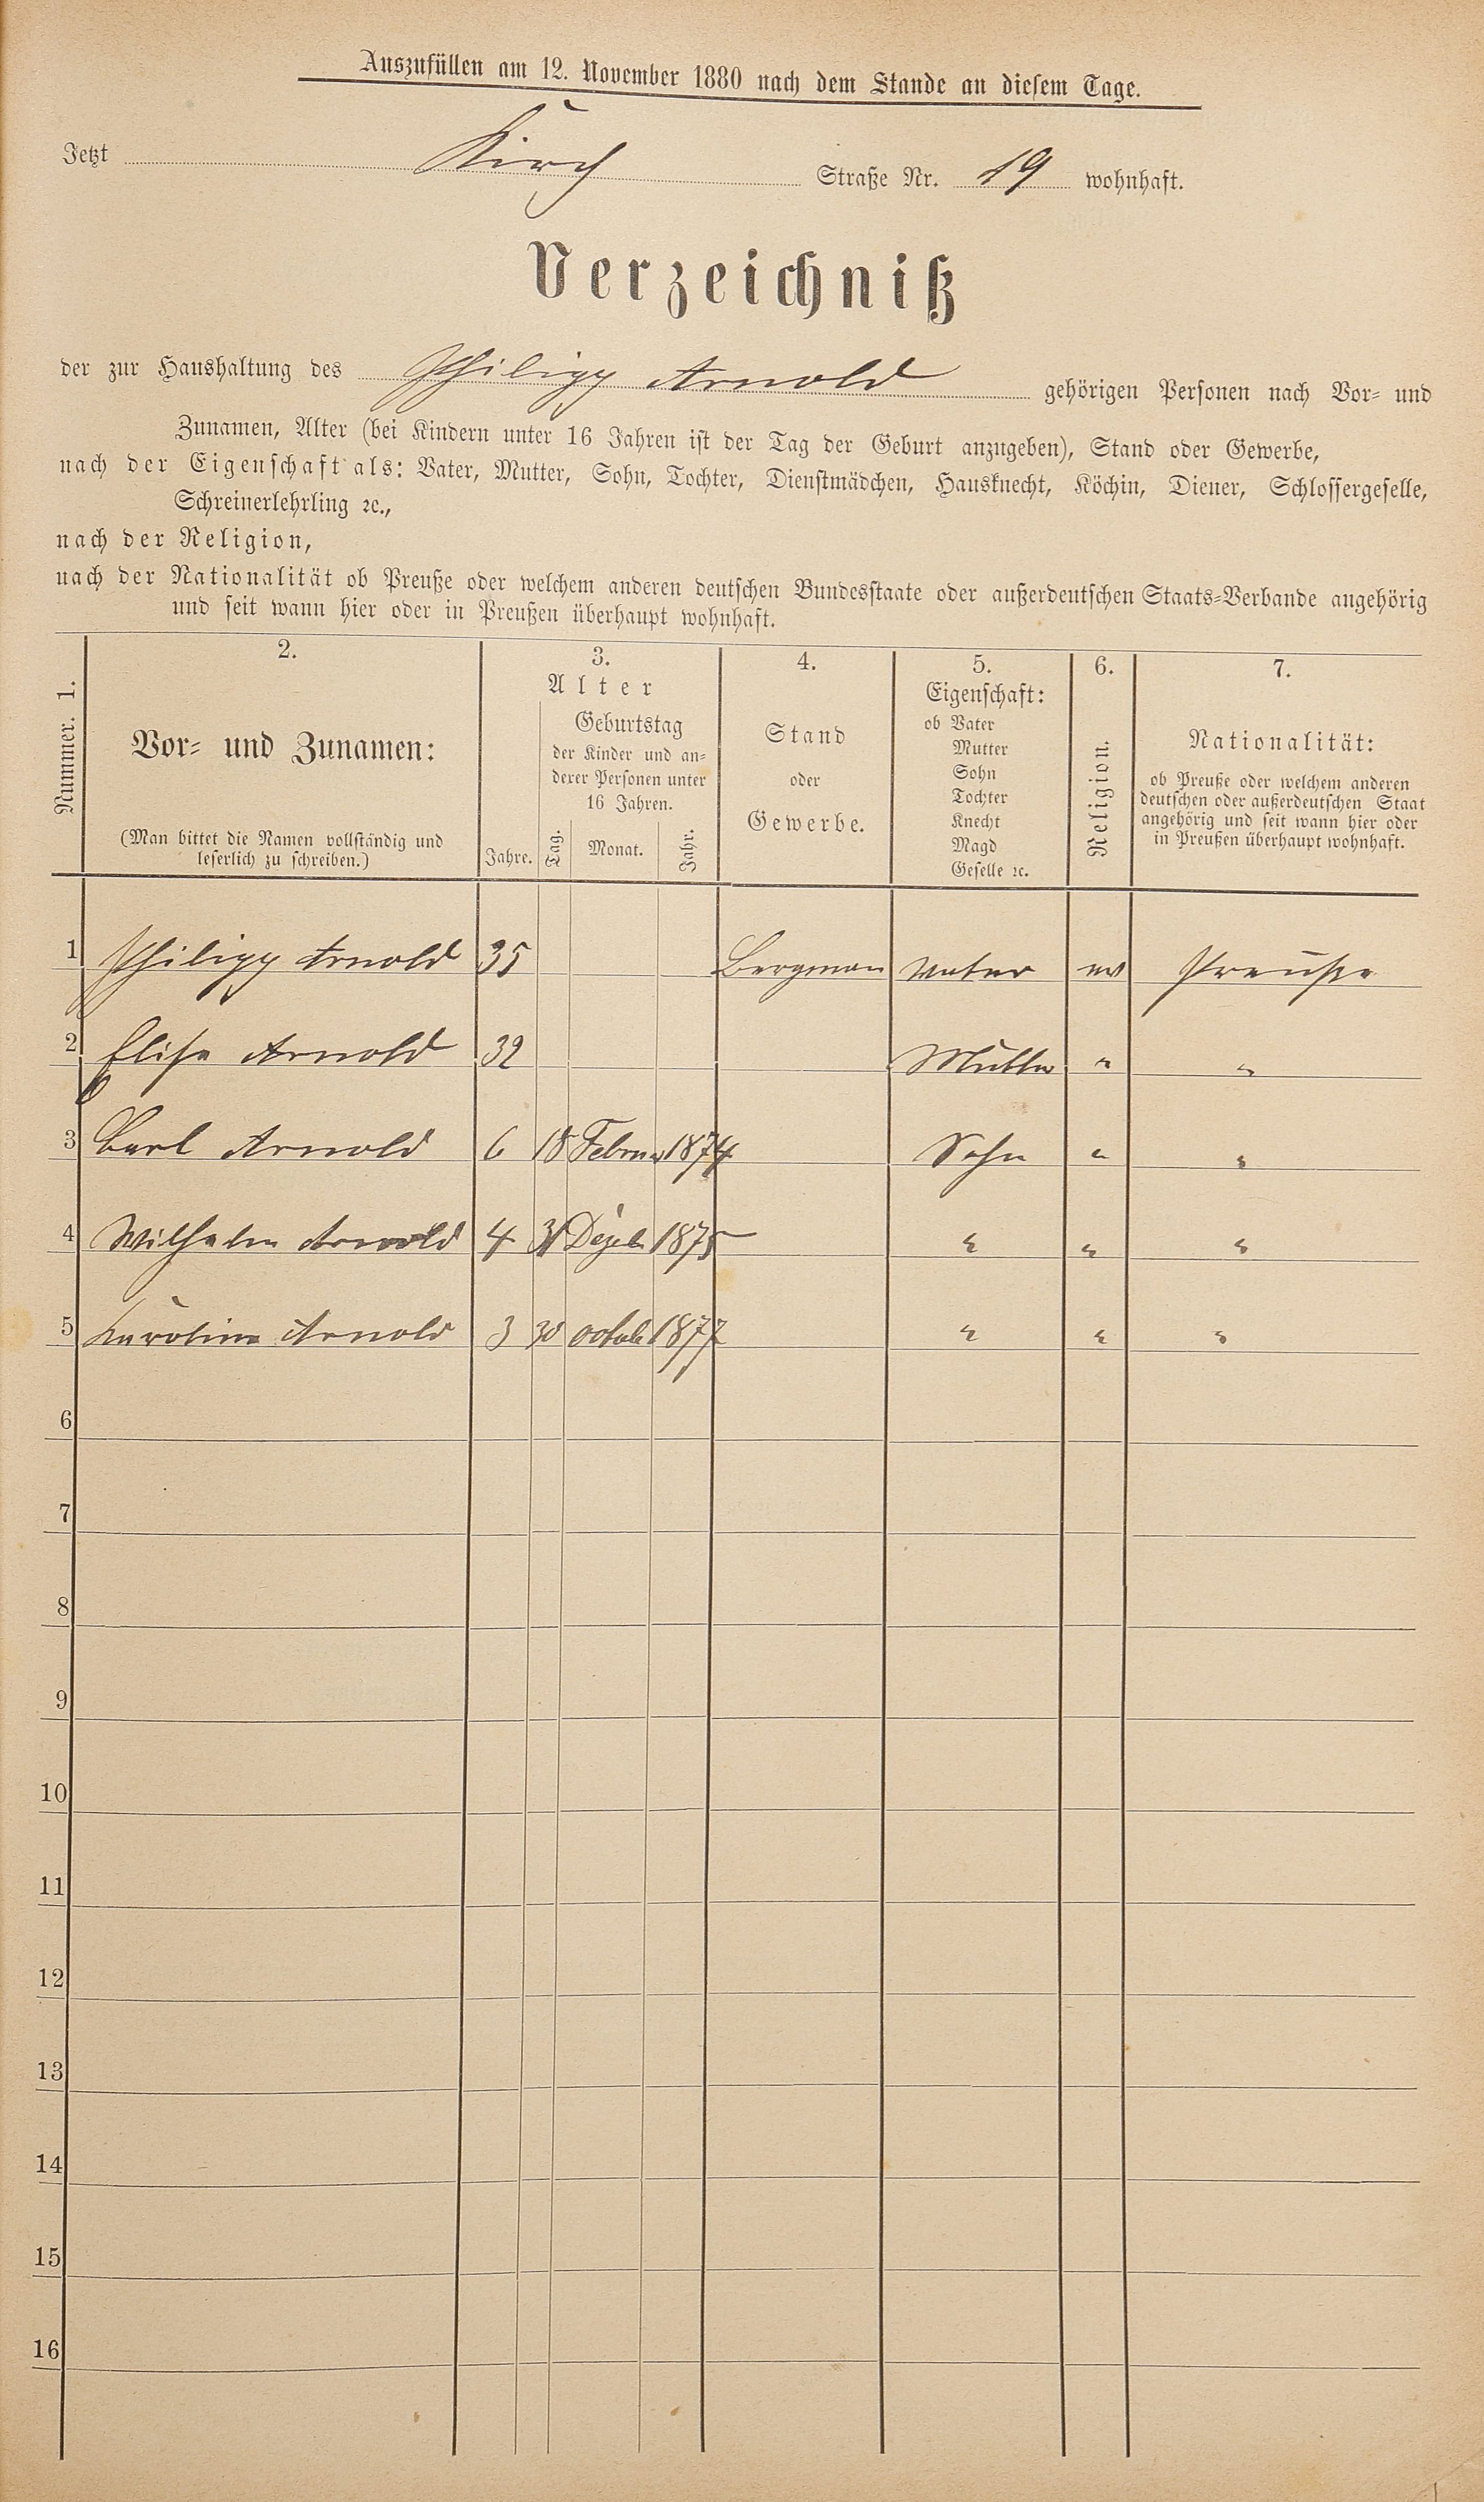 Auszufüllen am 12. November 1880 nach dem Stande an diesem Tage.
Jetzt Kirch Straße Nr. 19 wohnhaft.
Verzeichniß
der zur Haushaltung des Philipp Arnold gehörigen Personen nach Vor- und
Zunamen, Alter (bei Kindern unter 16 Jahren ist der Tag der Geburt anzugeben), Stand oder Gewerbe,
nach der Eigenschaft als: Vater, Mutter, Sohn, Tochter, Dienstmädchen, Hausknecht, Köchin, Diener, Schlossergeselle,
Schreinerlehrling ꝛc.,
nach der Religion,
nach der Nationalität ob Preuße oder welchem anderen deutschen Bundesstaate oder außerdeutschen Staats-Verbande angehörig
und seit wann hier oder in Preußen überhaupt wohnhaft.
Nummer. 1.
2.
Vor- und Zunamen:
(Man bittet die Namen vollständig und
leserlich zu schreiben.)
3.
Alter
Jahre.
Geburtstag
der Kinder und an-
derer Personen unter
16 Jahren.
Tag. Monat. Jahr.
4.
Stand
oder
Gewerbe.
5.
Eigenschaft:
ob Vater
Mutter
Sohn
Tochter
Knecht
Magd
Geselle ꝛc.
6.
Religion.
7.
Nationalität:
ob Preuße oder welchem anderen
deutschen oder außerdeutschen Staat
angehörig und seit wann hier oder
in Preußen überhaupt wohnhaft.
1 Philipp Arnold 35 Bergman Vater ev Preuße
2 Elise Arnold 32 Mutter " "
3 Carl Arnold 6 18 Februar 1874 Sohn " "
4 Wilhelm Arnold 4 31 Dezeb 1875 " " "
5 Karoline Arnold 3 30 octob 1877 " " "
6
7
8
9
10
11
12
13
14
15
16